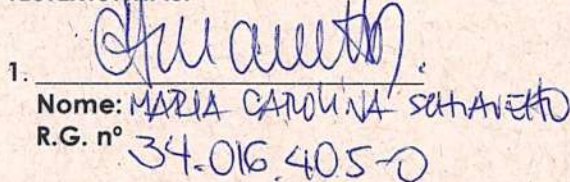 1.
Nome: MARIA CAROLINA SCHIAVETTO
R.G. nº 34.016.405-0